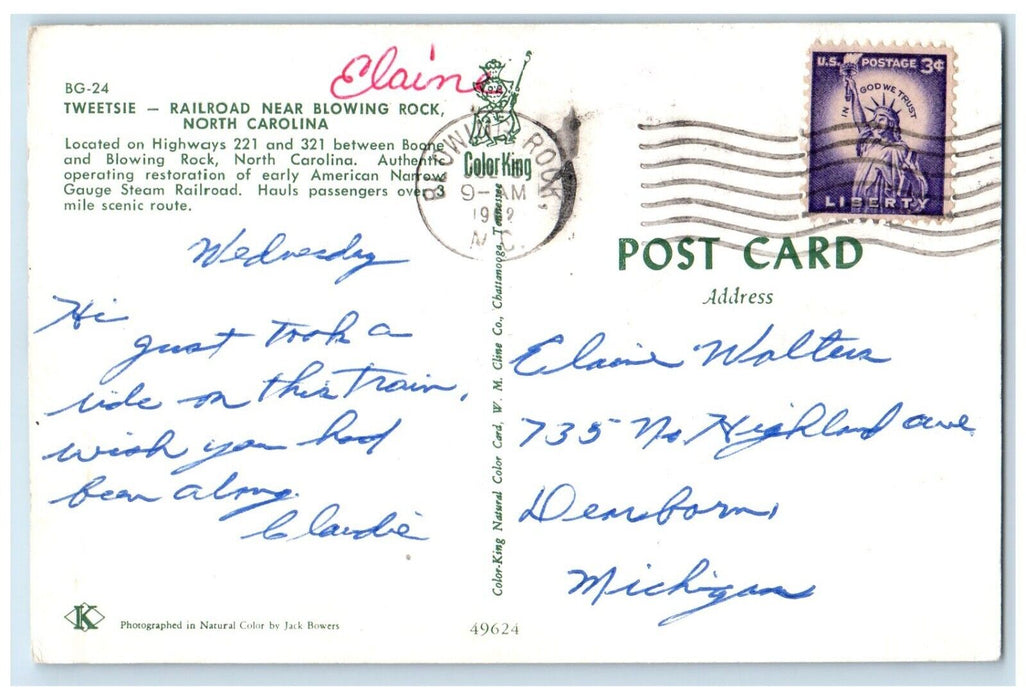 BG-24
TWEETSIE — RAILROAD NEAR BLOWING ROCK,
NORTH CAROLINA
Located on Highways 221 and 321 between Boone
and Blowing Rock, North Carolina. Authentic
operating restoration of early American Narrow
Gauge Steam Railroad. Hauls passengers over 3
mile scenic route.
Elaine
Color King
BLOWING ROCK,
9-AM
N.C.
U.S. POSTAGE 3¢
IN GOD WE TRUST
LIBERTY
Wednesday
Hi
just took a
ride on this train,
wish you had
been along.
Claudie
Color-King Natural Color Card, W. M. Cline Co., Chattanooga, Tennessee
POST CARD
Address
Elaine Walters
735 No Highland ave
Dearborn,
Michigan
K
Photographed in Natural Color by Jack Bowers
49624